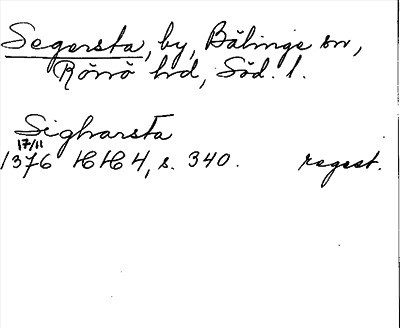 Segersta, by, Bälinge sn,
Rönö hd, Söd. l.
Sighvarsta
17/11
1376 HH 4, s. 340. regest.